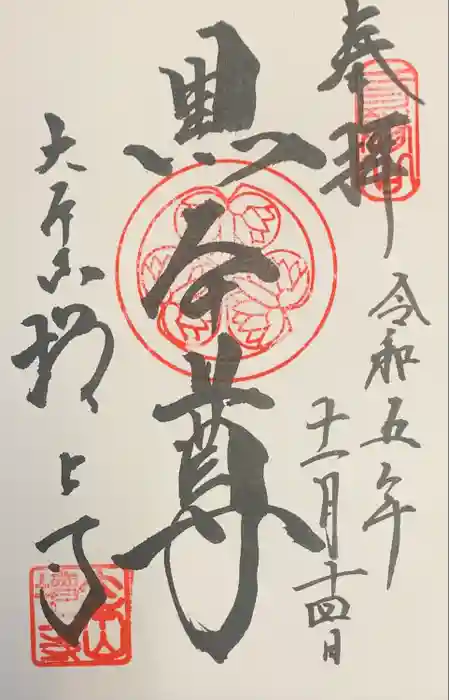 奉拝
令和五年
十一月十四日
黒本尊
大本山
増上寺